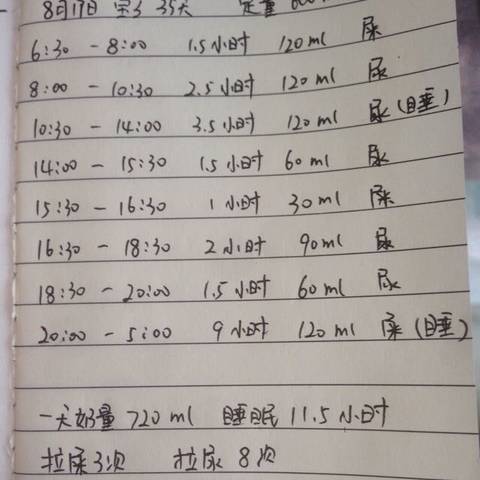 8月17日 宝宝 35天 定量 600ml
6:30 - 8:00 1.5小时 120ml 尿
8:00 - 10:30 2.5小时 120ml 尿
10:30 - 14:00 3.5小时 120ml 尿(睡)
14:00 - 15:30 1.5小时 60ml 尿
15:30 - 16:30 1小时 30ml 屎
16:30 - 18:30 2小时 90ml 尿
18:30 - 20:00 1.5小时 60ml 尿
20:00 - 5:00 9小时 120ml 屎(睡)
一天奶量 720ml 睡眠 11.5小时
拉屎3次 拉尿 8次